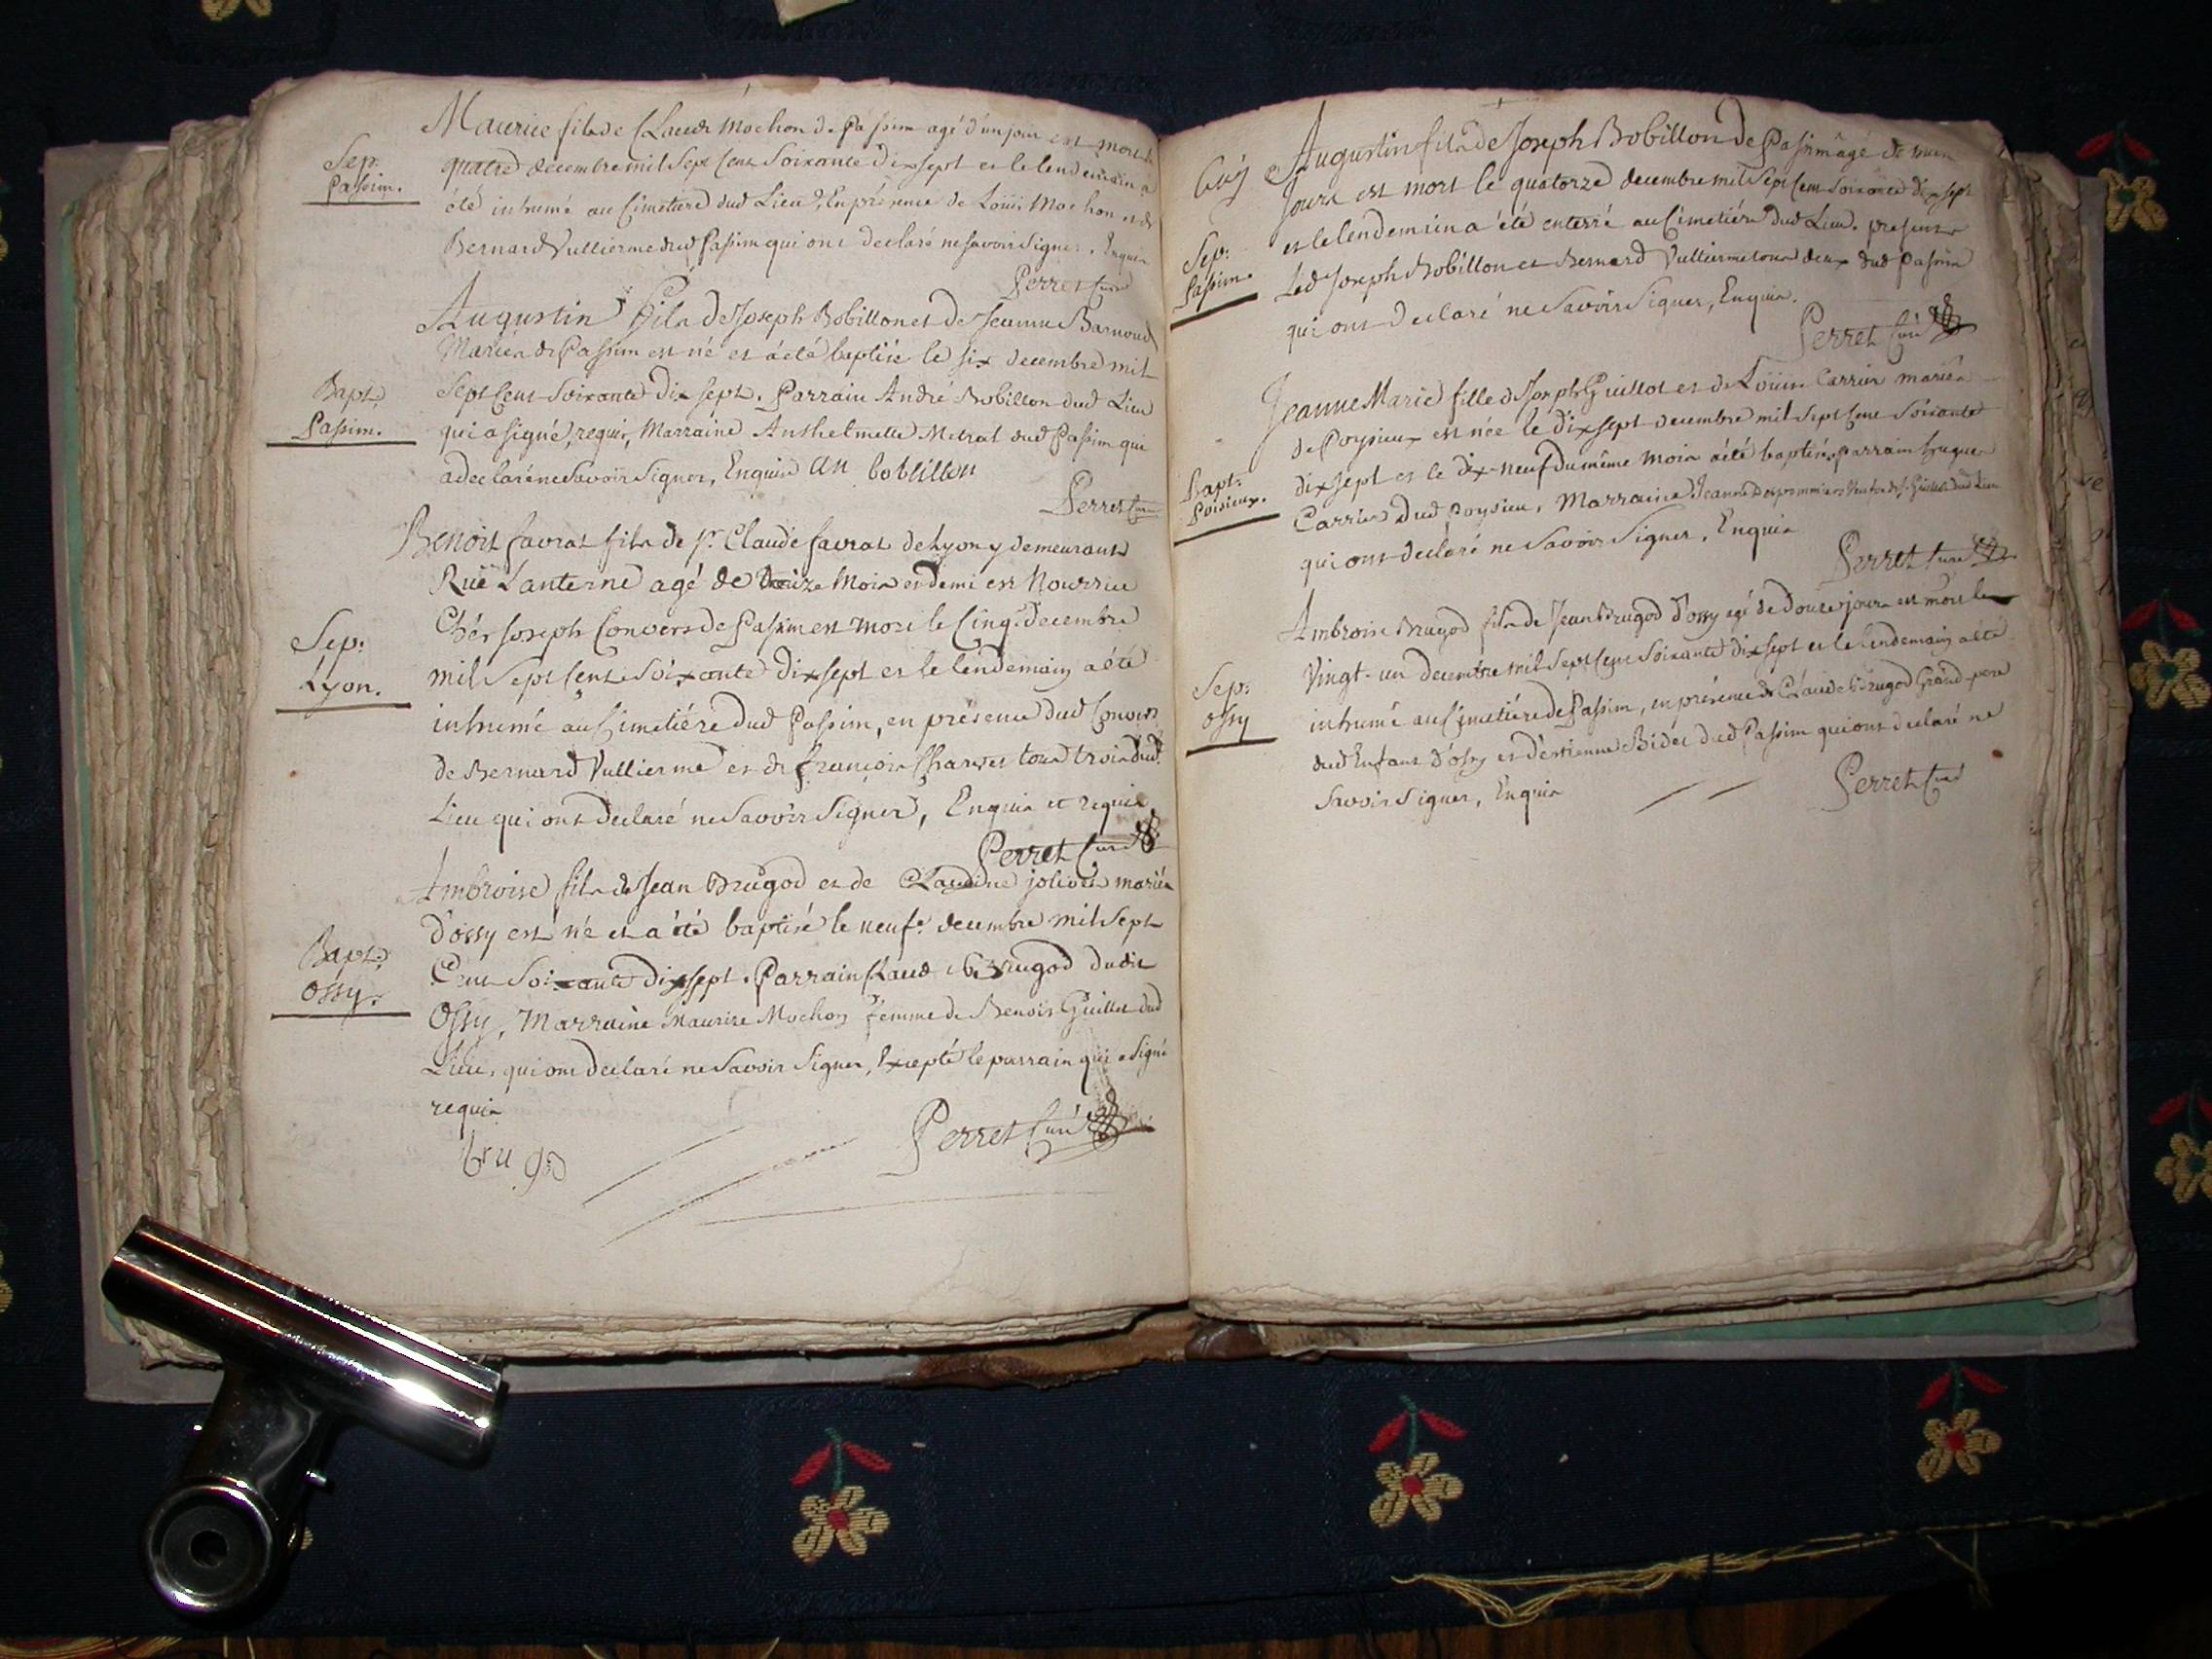 Maurice fils de Claude Mochon de Passim agé d'un jour est mort le
Sep.
Passim.
quatre decembre mil Sept Cent Soixante Dixsept et le lendemain a
été inhumé au Cimetiere dud Lieu, En présence de Louis Mochon et de
Bernard Vullierme dud Passim qui ont declaré ne Savoir Signer. Enquis
Perret Curé
Augustin Fils de Joseph Bobillon et de Jeanne Barnoud
Mariés de Passim est né et a été baptisé le six decembre mil
Bapt.
Passim.
Sept Cent Soixante dix sept. Parrain André Bobillon dud Lieu
qui a signé, requis, Marraine Anthelmette Metral dud Passim qui
a declaré ne Savoir Signer, Enquis an bobillion
Perret Curé
Benoit favrat fils de Sr. Claude favrat de Lyon y demeurant
Ruë Lanterne agé de Mois et demi en Nourrice
Sep.
Lyon.
Chés Joseph Convers de Passim est mort le Cinq decembre
mil Sept Cent Soixante Dixsept et le lendemain a été
inhumé au Cimetiére dud Passim, en présence dud Convers
de Bernard Vullierme et de françois tous trois dud.
Lieu qui ont declaré ne Savoir Signer, Enquis et requis
Perret Curé
Ambroise fils de Jean Brugod et de Claudine jolivet mariés
Bapt.
Ossy.
D'ossy est né et a été baptisé le neuf. decembre mil Sept
Cent Soixante dixsept. Parrain Claude Brugod dudit
Ossy, Marraine Maurise Mochon femme de Benoit Guillot dud
Lieu, qui ont declaré ne Savoir Signer, Excepté le parrain qui a Signé
requis
bru god
Perret Curé
Augustin fils de Joseph Bobillon de Passim agé de
Jours est mort le quatorze decembre mil Sept Cent Soixante dixsept
Sep.
Passim.
et le lendemain a été enterré au Cimetiére dud Lieu. presents
Led Joseph Bobillon et Bernard Vullierme tous deux dud Passim
qui ont declaré ne Savoir Signer, Enquis.
Perret Curé
Jeanne Marie fille de Joseph Guillot et de Loüise Carrier mariés
de Poysieux est née le dixsept decembre mil Sept Cent Soixante
Bapt.
Poisieux.
dixsept et le dix-neuf du même mois a été baptisée, parrain hugues
Carrier dud Poysieu, Marraine Jeanne Guillot dud Lieu
qui ont declaré ne Savoir Signer, Enquis
Perret Curé
Ambroise Brugod fils de Jean Brugod D'ossy agé de douze jours est mort le
Sep.
Ossy
Vingt-un decembre mil Sept Cent Soixante dixsept et le lendemain a été
inhumé au Cimetiére de Passim, en présence de Claude Brugod Grand-pere
dud Enfant D'ossy et d'estienne Bidet dud Passim qui ont declaré ne
Savoir Signer, Enquis
Perret Curé